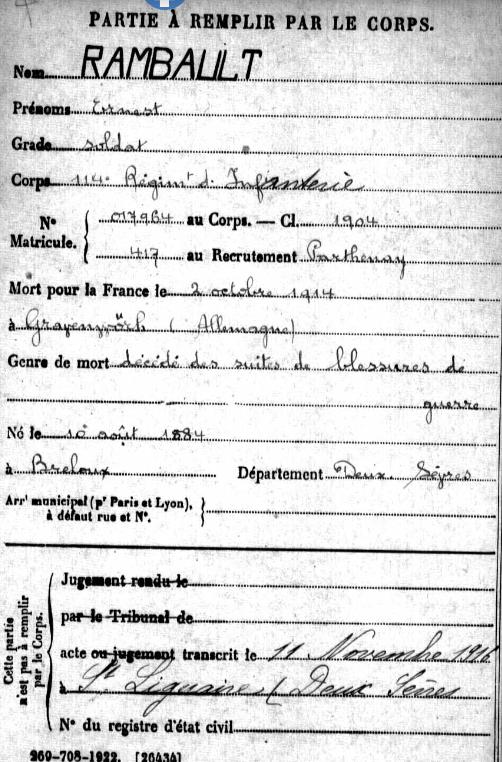 PARTIE À REMPLIR PAR LE CORPS.
Nom RAMBAULT
Prénoms Ernest
Grade soldat
Corps 114e Régimt d'Infanterie
Nº Matricule. { 017964 au Corps. — Cl. 1904
417 au Recrutement Parthenay
Mort pour la France le 2 octobre 1914
à Grafenwöhr (Allemagne)
Genre de mort décédé des suites de blessures de
guerre
Né le 10 août 1884
à Breloux Département Deux Sèvres
Arrt municipal (pr Paris et Lyon), à défaut rue et Nº. }
Cette partie n'est pas à remplir par le Corps.
Jugement rendu le
par le Tribunal de
acte ou jugement transcrit le 11 Novembre
à St Liguaire (Deux Sèvres
Nº du registre d'état civil
269-708-1922. [26434]